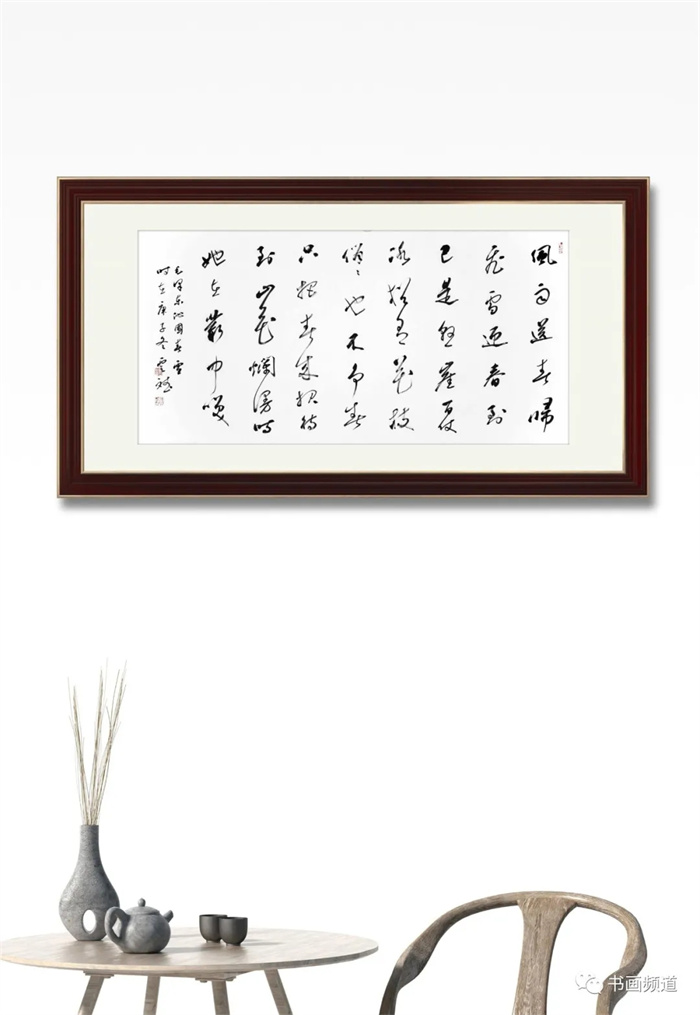 風雨送春歸
飛雪迎春到
已是懸崖百丈
冰猶有花枝
俏〻也不争春
只把春來報待
到山花爛漫時
她在叢中笑
毛澤東沁園春雪
時在庚子冬
书画频道